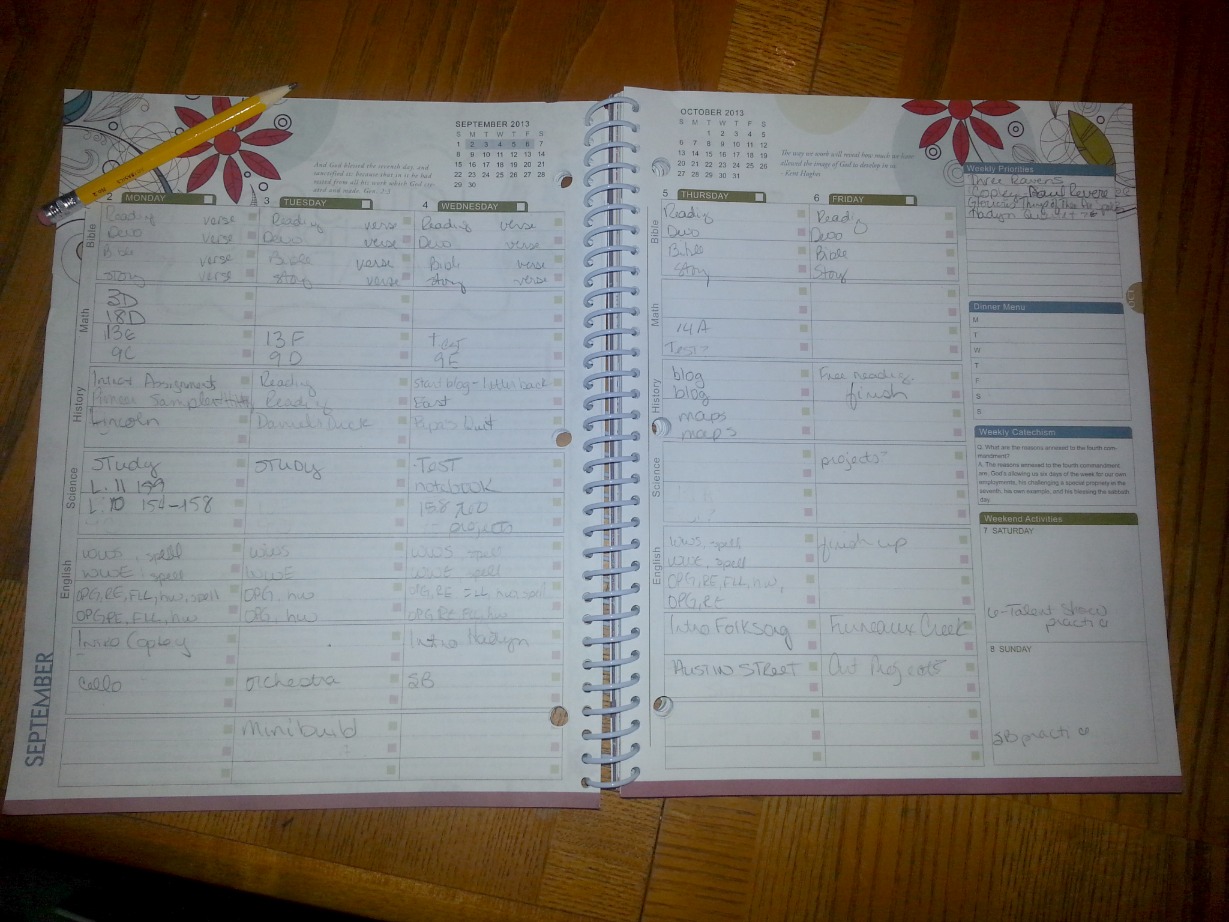 SEPTEMBER 2013
S M T W T F S
1 2 3 4 5 6 7
8 9 10 11 12 13 14
15 16 17 18 19 20 21
22 23 24 25 26 27 28
29 30
And God blessed the seventh day, and
sanctified it: because that in it he had
rested from all his work which God cre-
ated and made. Gen. 2:3
2 MONDAY 3 TUESDAY 4 WEDNESDAY
Bible
Reading verse Reading verse Reading verse
Devo verse Devo verse Devo verse
Bible verse Bible verse Bible verse
Story verse Story verse Story verse
Math
3D
18D
13E 13F test
9C 9D 9E
History
Intro Assignments Reading Start blog - letter back
Reading East
Lincoln Daniel's Duck
Science
Study Study Test
L. 11 159 notebook
L. 10 154-158 158
projects
English
WWS, spell WWS WWS, spell
WWE, spell WWE WWE spell
OPG, RE, FLL, hw, spell OPG, hw OPG, RE FLL, hw, spell
OPG RE, FLL, hw OPG, hw OPG RE FLL, hw
Intro Copley Intro Hadyn
Cello Orchestra SB
Minibuild
?
SEPTEMBER
OCTOBER 2013
S M T W T F S
1 2 3 4 5
6 7 8 9 10 11 12
13 14 15 16 17 18 19
20 21 22 23 24 25 26
27 28 29 30 31
The way we work will reveal how much we have
allowed the image of God to develop in us.
Kent Hughes
5 THURSDAY 6 FRIDAY
Bible
Reading Reading
Devo Devo
Bible Bible
Story Story
Math
14A
Test?
History
blog Free reading
blog finish
maps
maps
Science
projects?
English
WWS, spell finish up
WWE, spell
OPG, RE, FLL, hw,
OPG, RE
Intro Folksong Furneaux Creek
Austin Street Art Projects
Weekly Priorities
Three Ravens
Copley Paul Revere
Glorious Things of Thee Are Spoken
Dinner Menu
M
T
W
T
F
S
S
Weekly Catechism
Q. What are the reasons annexed to the fourth com-
mandment?
A. The reasons annexed to the fourth commandment
are, God's allowing us six days of the week for our own
employments, his challenging a special propriety in the
seventh, his own example, and his blessing the sabbath
day.
Weekend Activities
7 SATURDAY
6-Talent Show
practice
8 SUNDAY
SB practice